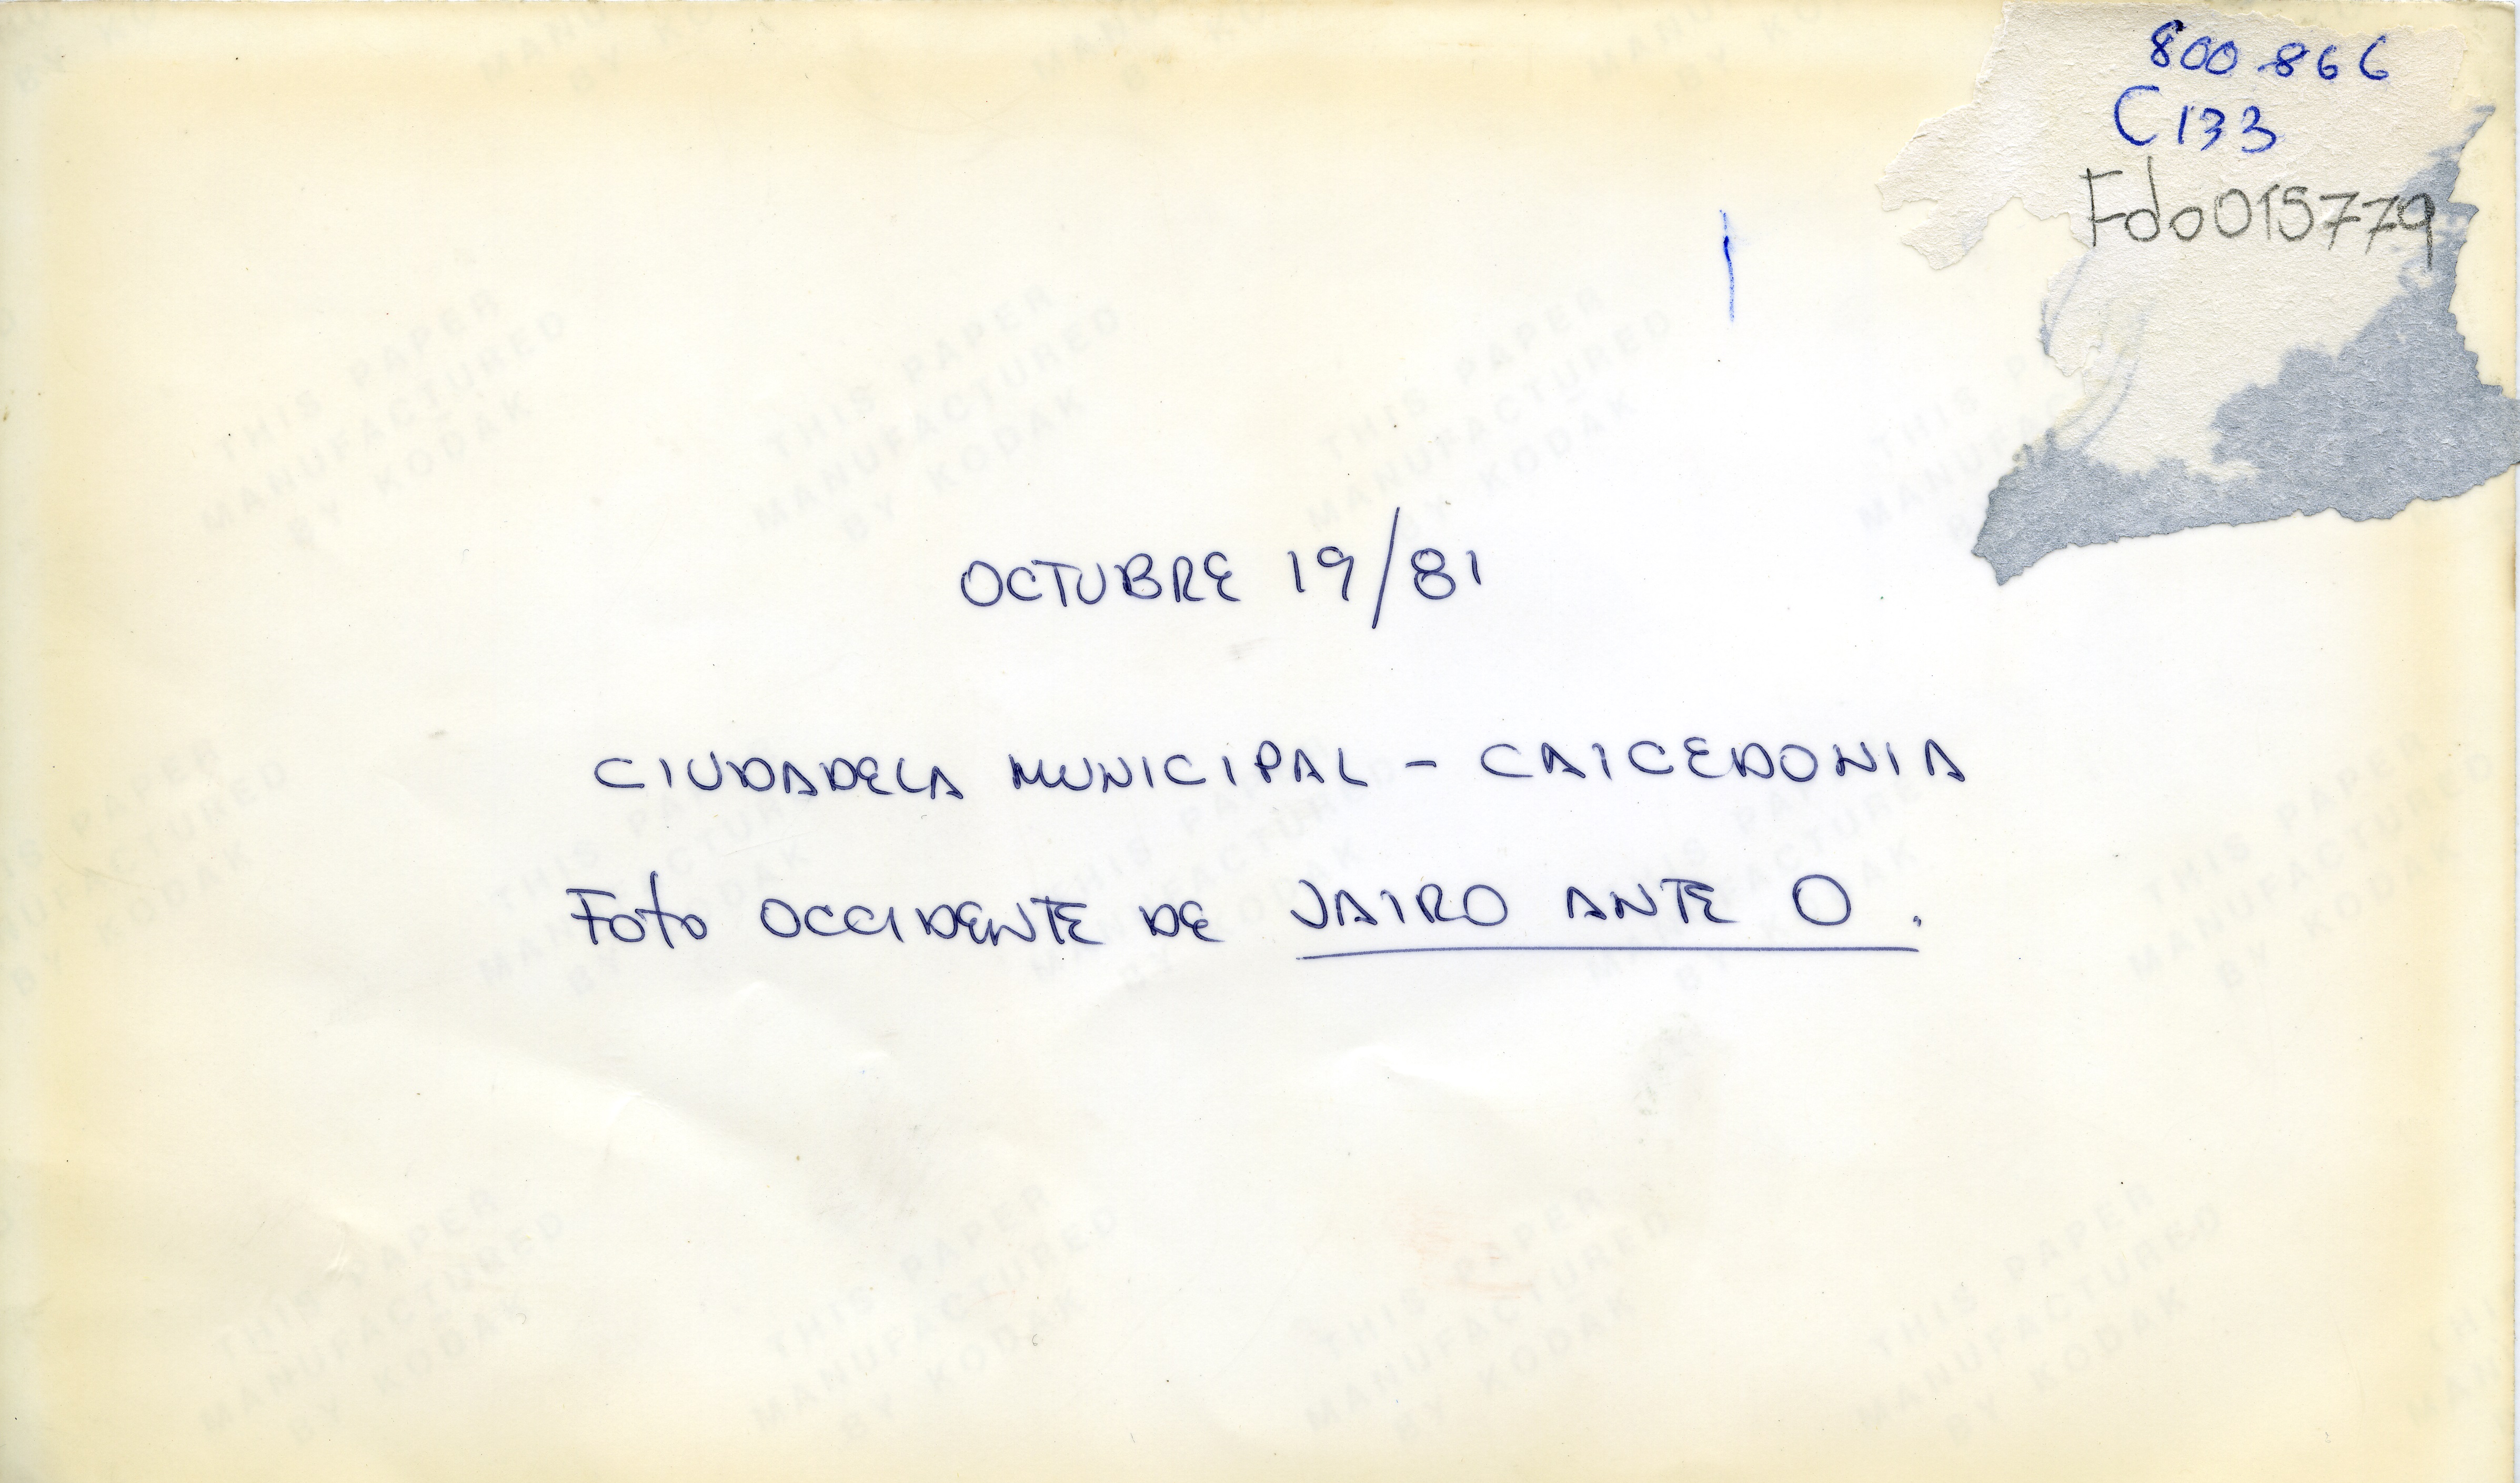 800.866
C133
Fdo015779
OCTUBRE 19/81
CIUDADELA MUNICIPAL - CAICEDONIA
Foto OCCIDENTE DE JAIRO ANTE O.
THIS PAPER
MANUFACTURED
BY KODAK